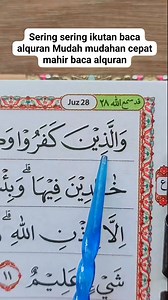 Sering sering ikutan baca
alquran Mudah mudahan cepat
mahir baca alquran
قد سمع الله ٢٨
Juz 28
وَالَّذِيْنَ كَفَرُوْا
خٰلِدِيْنَ فِيْهَاۗ
اللّٰهِ
شَيْءٍ عَلِيْمٌ ١١